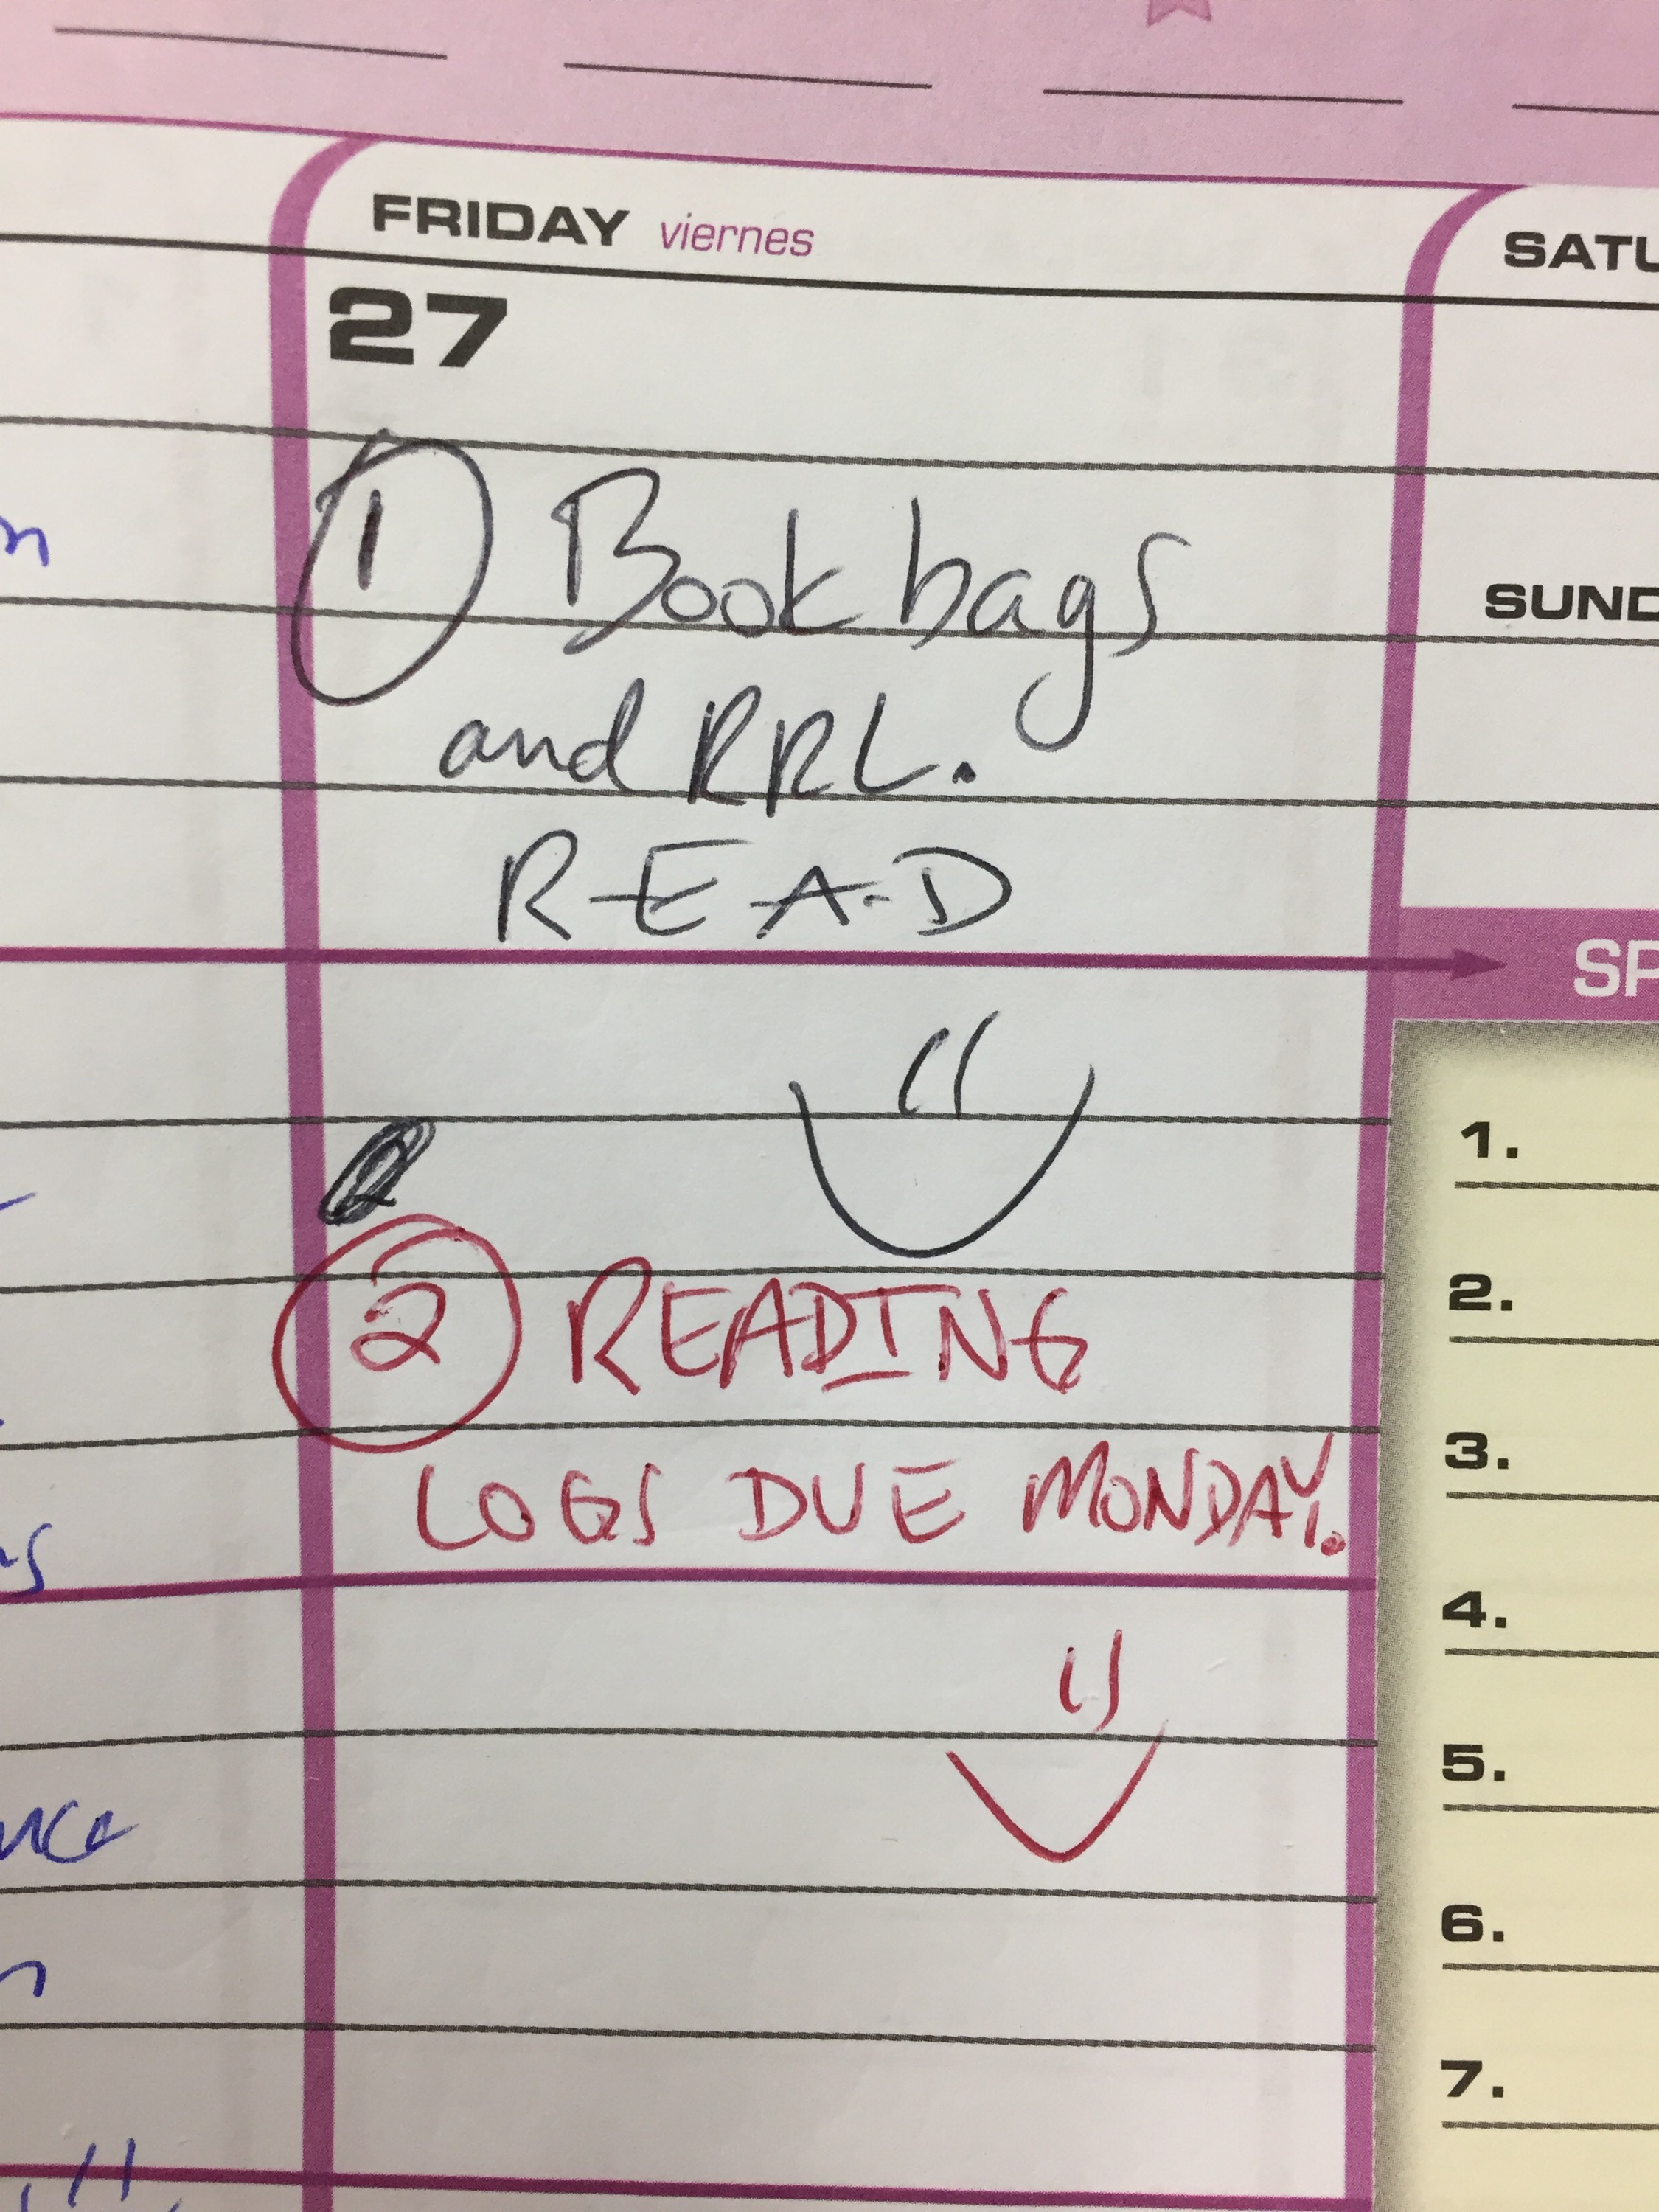 FRIDAY viernes
27
1 Book bags
and RRL.
READ
2 READING
LOGS DUE MONDAY.
SP
1.
2.
3.
4.
5.
6.
7.